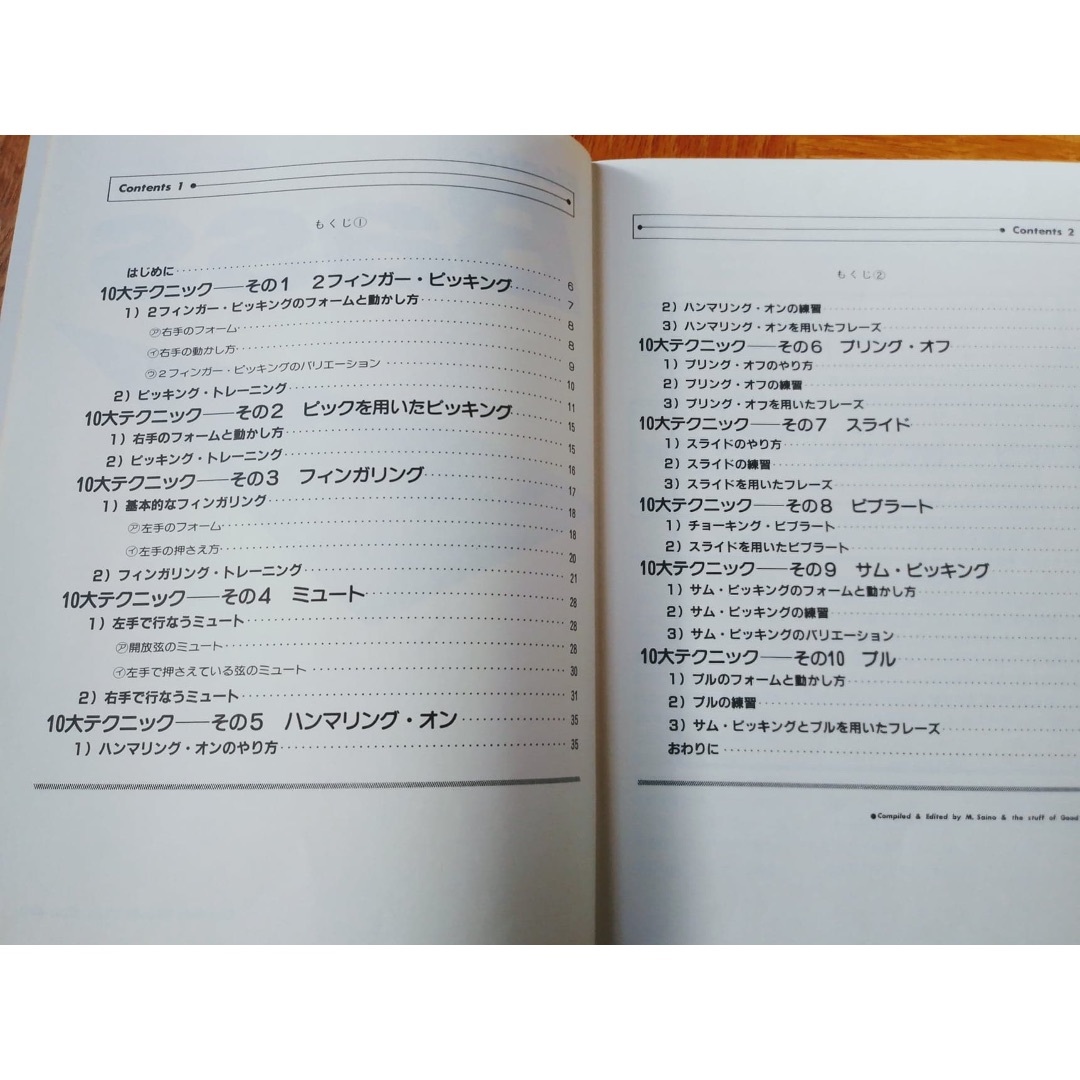 Contents 1
もくじ①
はじめに 6
10大テクニック――その1 2フィンガー・ピッキング 7
1）2フィンガー・ピッキングのフォームと動かし方 8
㋐右手のフォーム 8
㋑右手の動かし方 9
㋒2フィンガー・ピッキングのバリエーション 10
2）ピッキング・トレーニング 11
10大テクニック――その2 ピックを用いたピッキング 15
1）右手のフォームと動かし方 15
2）ピッキング・トレーニング 16
10大テクニック――その3 フィンガリング 17
1）基本的なフィンガリング 18
㋐左手のフォーム 18
㋑左手の押さえ方 20
2）フィンガリング・トレーニング 21
10大テクニック――その4 ミュート 28
1）左手で行なうミュート 28
㋐開放弦のミュート 28
㋑左手で押さえている弦のミュート 30
2）右手で行なうミュート 31
10大テクニック――その5 ハンマリング・オン 35
1）ハンマリング・オンのやり方 35
Contents 2
もくじ②
2）ハンマリング・オンの練習
3）ハンマリング・オンを用いたフレーズ
10大テクニック――その6 プリング・オフ
1）プリング・オフのやり方
2）プリング・オフの練習
3）プリング・オフを用いたフレーズ
10大テクニック――その7 スライド
1）スライドのやり方
2）スライドの練習
3）スライドを用いたフレーズ
10大テクニック――その8 ビブラート
1）チョーキング・ビブラート
2）スライドを用いたビブラート
10大テクニック――その9 サム・ピッキング
1）サム・ピッキングのフォームと動かし方
2）サム・ピッキングの練習
3）サム・ピッキングのバリエーション
10大テクニック――その10 プル
1）プルのフォームと動かし方
2）プルの練習
3）サム・ピッキングとプルを用いたフレーズ
おわりに
●Compiled & Edited by M. Saino & the stuff of Good